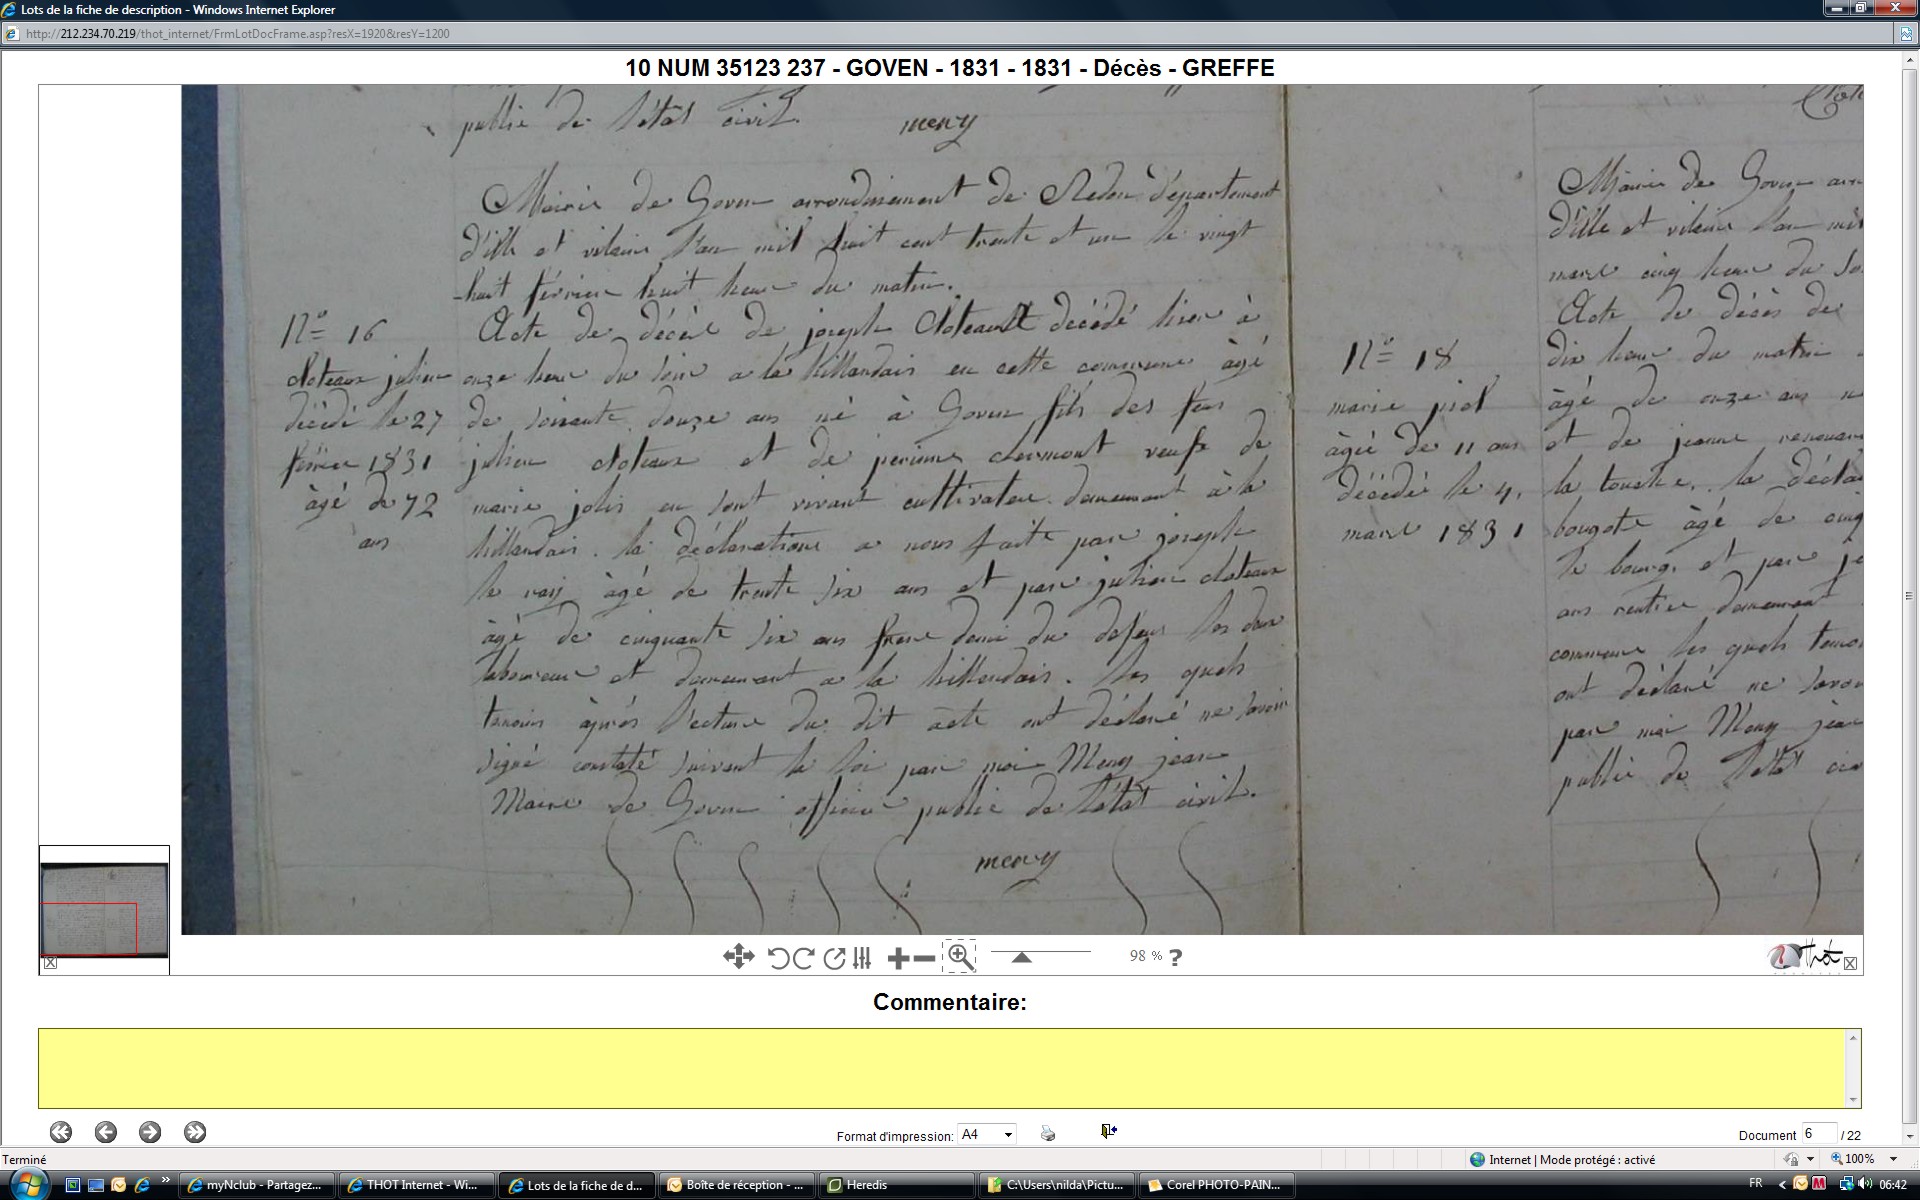 Lots de la fiche de description - Windows Internet Explorer
http://212.234.70.219/thot_internet/FrmLotDocFrame.asp?resX=1920&resY=1200
10 NUM 35123 237 - GOVEN - 1831 - 1831 - Décès - GREFFE
publié de l'état civil. meny
Mairie de Goven arrondissement de Redon département
d'ille et vilaine l'an mil huit cent trente et un le vingt
huit février huit heure du matin.
Acte de décès de joseph décédé hier à
onze heure du soir a la hillandais en cette commune âgé
de soixante douze ans né à Goven fils des feus
julien et de perinne clermont veuf de
marie jolis en sont vivant cultivateur demeurant à la
hillandais. la déclarations a nous faite par joseph
le ray âgé de trente six ans et par julien
âgé de cinquante six ans frere demi du defunt les deux
laboureur et demeurant a la hillandais. les quels
temoins àprés l'ecture du dit acte ont déclaré ne savoir
signé constaté suivant la loi par moi Meny jean
Maire de Goven officier public de l'état civil.
meny
N° 16
julien
décédé le 27
février 1831
âgé de 72
ans
N° 18
marie piel
âgée de 11 ans
décédé le 4.
mars 1831
Mairie de Goven arr
d'ille et vilaine l'an mil
mars cinq heure du so
Acte de décès de
dix heure du matin
âgé de onze ans n
et de jeanne
la touche. la décla
âgé de cinq
le bourg. et par je
ans rentier demeurant
commune les quels temoi
ont déclaré ne savoi
par moi Meny jean
public de l'état civ
98 %
?
Thot
Commentaire:
Format d'impression: A4
Document 6 / 22
Terminé
Internet | Mode protégé : activé
100%
myNclub - Partagez...
THOT Internet - Wi...
Lots de la fiche de d...
Boîte de réception - ...
Heredis
C:\Users\nilda\Pictu...
Corel PHOTO-PAIN...
FR
06:42